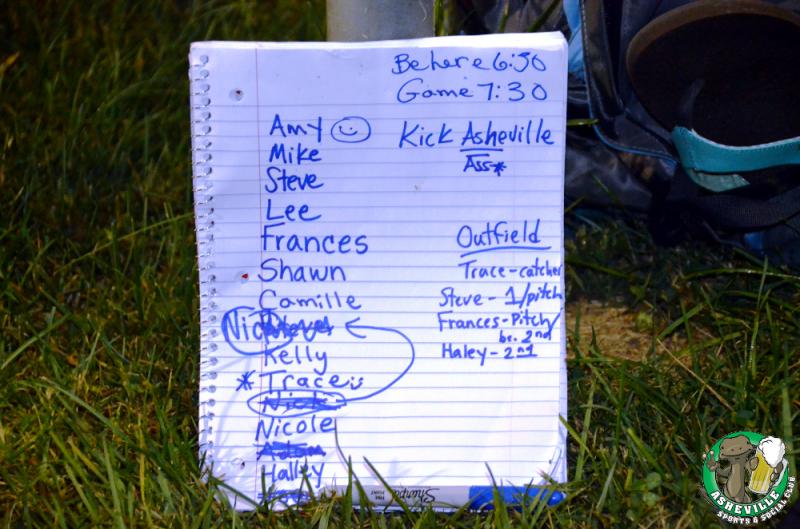 Be here 6:30
Game 7:30
Kick Asheville
Ass*
Amy
Mike
Steve
Lee
Frances
Shawn
Camille
Nick
Kelly
* Trace
Nick
Nicole
Adam
Halley
Outfield
Trace - catcher
Steve - 1/pitch
Frances - Pitch/
be. 2nd
Haley - 2nd
Sharpie
ASHEVILLE
SPORTS & SOCIAL CLUB